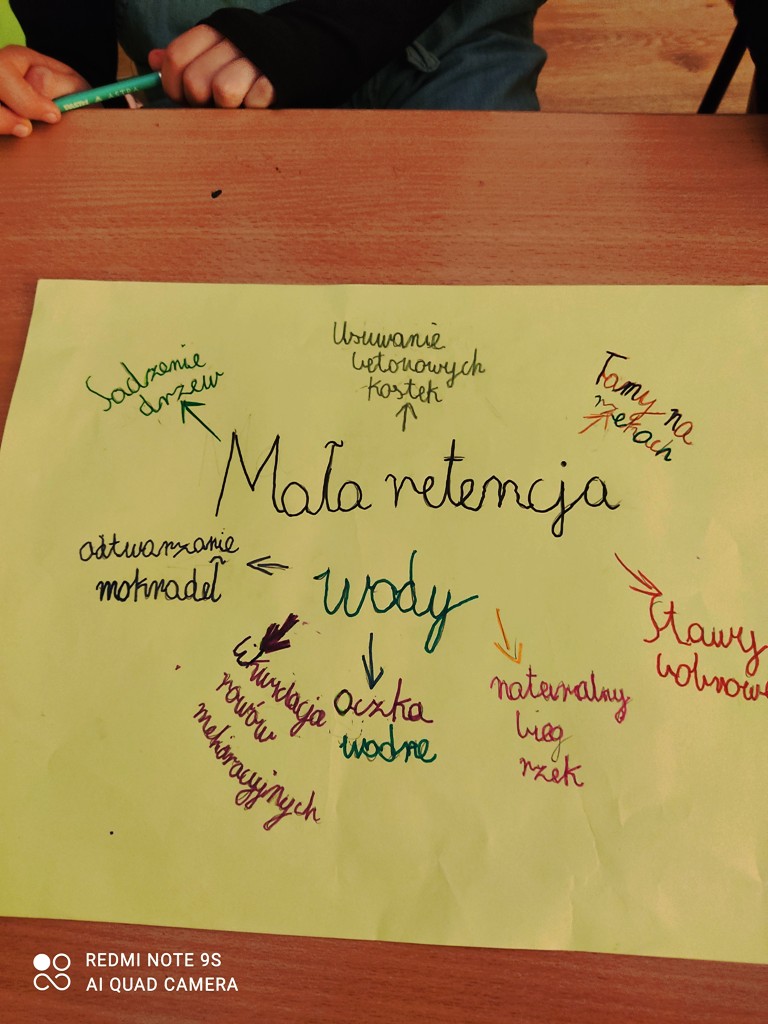 Sadzenie
drzew
Usuwanie
betonowych
kostek
Tamy na
rzekach
Mała retencja
wody
odtwarzanie
mokradeł
Stawy
likwidacja
rowów
melioracyjnych
oczka
wodne
naturalny
bieg
rzek
REDMI NOTE 9S
AI QUAD CAMERA